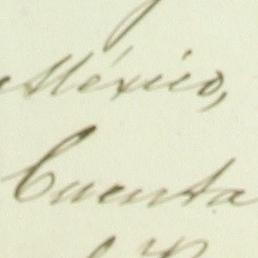 México,
Cuenta